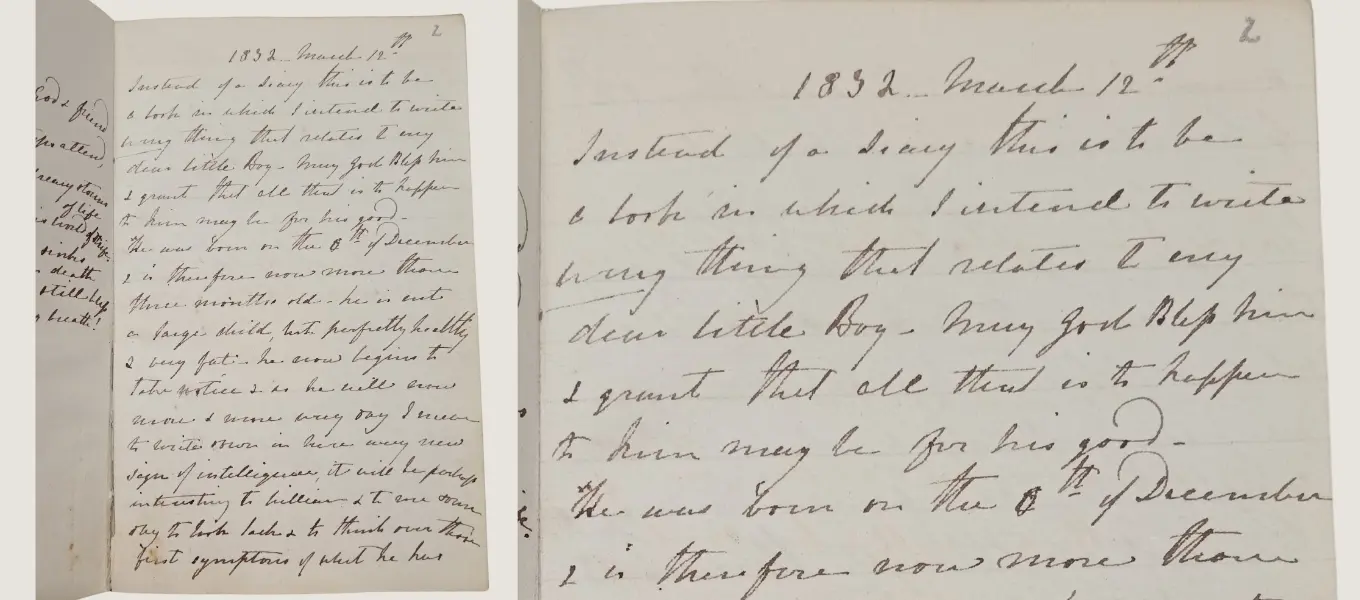 God & friend
attend,
dreary storms
of life
sinks
death
still keep
breath!
2
1832 - March 12th
Instead of a diary this is to be
a book in which I intend to write
every thing that relates to my
dear little Boy - May God Bless him
& grant that all that is to happen
to him may be for his good -
He was born on the 8th of December
& is therefore now more than
three months old - he is not
a large child, but perfectly healthy
& very fat - he now begins to
take notice & as he will now
more & more every day I mean
to write down in here every new
sign of intelligence, it will be perhaps
interesting to William & to me some
day to look back & to think over those
first symptoms of what he has
2
1832 - March 12th
Instead of a diary this is to be
a book in which I intend to write
every thing that relates to my
dear little Boy - May God Bless him
& grant that all that is to happen
to him may be for his good -
He was born on the 8th of December
& is therefore now more than